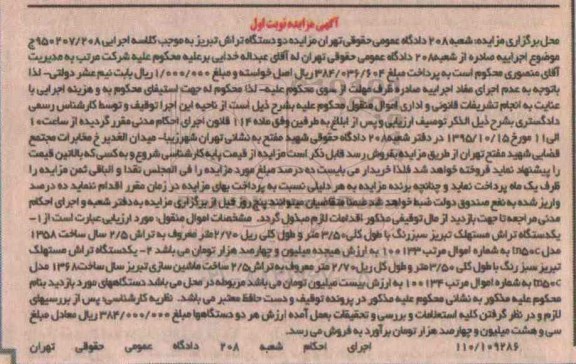 آگهی مزایده نوبت اول
محل برگزاری مزایده: شعبه ۲۰۸ دادگاه عمومی حقوقی تهران مزایده دو دستگاه تراش تبریز به موجب کلاسه اجرایی ۹۵۰۲۰۷/۲۰۸ج
موضوع اجراییه صادره از شعبه ۲۰۸ دادگاه عمومی حقوقی تهران له آقای عبداله خدایی بر علیه محکوم علیه شرکت مرتب به مدیریت
آقای منصوری محکوم است به پرداخت مبلغ ۳۸۴/۰۳۶/۶۰۴ ریال اصل خواسته و مبلغ ۱/۰۰۰/۰۰۰ ریال بابت نیم عشر دولتی- لذا
باتوجه به عدم اجرای مفاد اجراییه صادره ظرف مهلت از سوی محکوم علیه- لذا محکوم له جهت استیفای محکوم به و هزینه اجرایی با
عنایت به انجام تشریفات قانونی و اداری اموال منقول محکوم علیه بشرح ذیل است از ناحیه این اجرا توقیف و توسط کارشناس رسمی
دادگستری بشرح ذیل الذکر توصیف ارزیابی و پس از ابلاغ به طرفین وفق ماده ۱۱۴ قانون اجرای احکام مدنی مقرر گردیده از ساعت ۱۰
الی ۱۱ مورخ ۱۳۹۵/۱۰/۱۵ در دفتر شعبه ۲۰۸ دادگاه حقوقی شهید مفتح به نشانی تهران شهرزیبا- میدان الغدیر خ مخابرات مجتمع
قضایی شهید مفتح تهران از طریق مزایده بفروش رسد قابل ذکر است مزایده از قیمت پایه کارشناسی شروع و به کسی که بالاترین قیمت
را پیشنهاد نماید فروخته خواهد شد فلذا خریدار می بایست ده درصد مبلغ مورد مزایده را فی المجلس نقدا و الباقی ثمن مزایده را
ظرف یک ماه پرداخت نماید و چنانچه برنده مزایده به هر دلیلی نسبت به پرداخت بهای مزایده در زمان مقرر اقدام ننماید ده درصد
واریز شده به نفع صندوق دولت ضبط خواهد شد ضمنا متقاضیان میتوانند پنج روز قبل از برگزاری مزایده به دفتر شعبه و اجرای احکام
مدنی مراجعه تا جهت بازدید از مال توقیفی مذکور اقدامات لازم مبذول گردد. مشخصات اموال منقول: مورد ارزیابی عبارت است از ۱-
یکدستگاه تراش مستهلک تبریز سبز رنگ با طول کلی ۳/۵۰ متر و طول کلی ریل ۲/۷۰ متر معروف به تراش ۲/۵ سال ساخت ۱۳۵۸
مدل tn50c به شماره اموال مرتب ۱۰۰۱۳۳ به ارزش هیجده میلیون و چهارصد هزار تومان می باشد ۲- یکدستگاه تراش مستهلک
تبریز سبز رنگ با طول کلی ۳/۵۰ متر و طول کل ریل ۲/۷۰ متر معروف به تراش ۲/۵ ساخت ماشین سازی تبریز سال ساخت ۱۳۶۸ مدل
tn50c به شماره اموال مرتب ۱۰۰۱۳۴ به ارزش بیست میلیون تومان می باشد مربوطه در محل می باشد دستگاههای مورد بازدید بنام
محکوم علیه مذکور به نشانی محکوم علیه مذکور در پرونده توقیف و دست حافظ معتبر می باشد. نظریه کارشناسی: پس از بررسیهای
لازم و در نظر گرفتن کلیه استعلامات و بررسی و تحقیقات بعمل آمده ارزش هر دو دستگاهها مبلغ ۳۸۴/۰۰۰/۰۰۰ ریال معادل مبلغ
سی و هشت میلیون و چهارصد هزار تومان برآورد به فروش می رسد.
۱۱۰/۱۰۹۲۸۶ اجرای احکام شعبه ۲۰۸ دادگاه عمومی حقوقی تهران